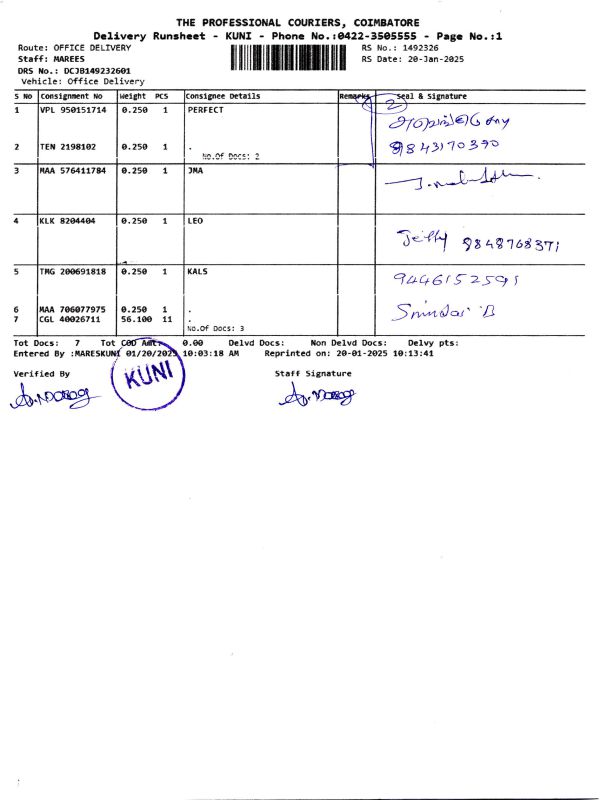 THE PROFESSIONAL COURIERS, COIMBATORE
Delivery Runsheet - KUNI - Phone No.:0422-3505555 - Page No.:1
Route: OFFICE DELIVERY RS No.: 1492326
Staff: MAREES RS Date: 20-Jan-2025
DRS No.: DCJB149232601
Vehicle: Office Delivery
S No Consignment No Weight PCS Consignee Details Remarks Seal & Signature
2
1 VPL 950151714 0.250 1 PERFECT
2 TEN 2198102 0.250 1 . 9843170390
No.Of Docs: 2
3 MAA 576411784 0.250 1 JMA
4 KLK 8204404 0.250 1 LEO
9848768371
5 TMG 200691818 0.250 1 KALS 9446152591
6 MAA 706077975 0.250 1 .
7 CGL 40026711 56.100 11 .
No.Of Docs: 3
Tot Docs: 7 Tot COD Amt: 0.00 Delvd Docs: Non Delvd Docs: Delvy pts:
Entered By :MARESKUNI 01/20/2025 10:03:18 AM Reprinted on: 20-01-2025 10:13:41
Verified By Staff Signature
KUNI